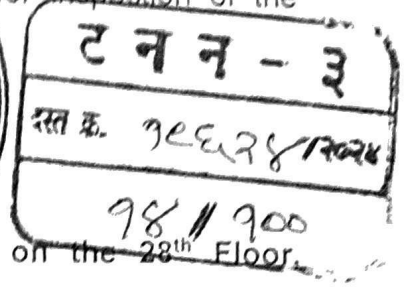 the
ट न न - ३
दस्त क्र. १९६२४/२०२४
१४ // १००
on the 28th Floor.